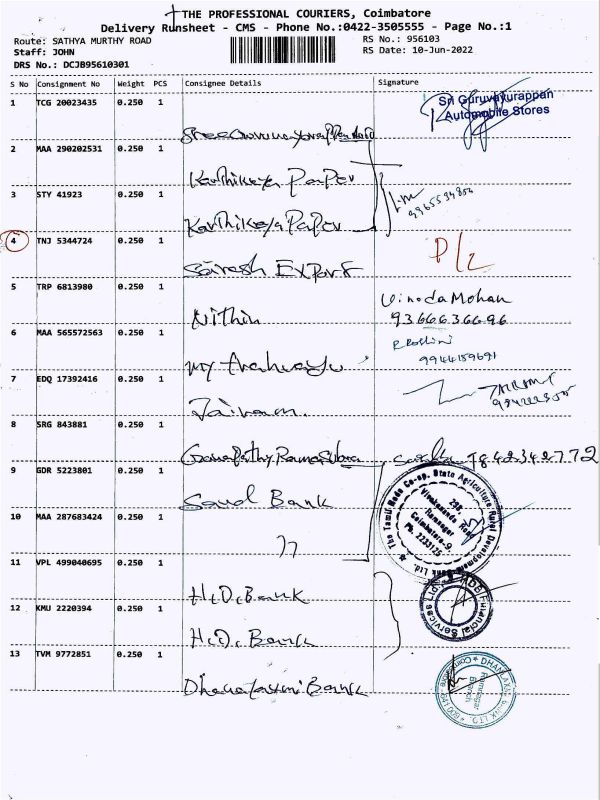 THE PROFESSIONAL COURIERS, Coimbatore
Delivery Runsheet - CMS - Phone No.:0422-3505555 - Page No.:1
Route: SATHYA MURTHY ROAD
RS No.: 956103
Staff: JOHN
RS Date: 10-Jun-2022
DRS No.: DCJB95610301
S No Consignment No Weight PCS Consignee Details Signature
1 TCG 20023435 0.250 1
Sri Guruvayurappan
Automobile Stores
2 MAA 290202531 0.250 1
Karthikeya Paper
3 STY 41923 0.250 1
Karthikeya Paper
4 TNJ 5344724 0.250 1
D/L
Sairesh Export
5 TRP 6813980 0.250 1
Vinoda Mohan
Nithin
9366636696
6 MAA 565572563 0.250 1
9944159691
My
7 EDQ 17392416 0.250 1
Jairam
8 SRG 843881 0.250 1
Ganapathy Ramasubra
9842342772
9 GDR 5223801 0.250 1
Bank
The Tamil Nadu Co-op. State Agriculture Rural Development Bank Ltd.
298,
Vivekananda Road
Ramnagar
Coimbatore-9.
Ph. 2233125
10 MAA 287683424 0.250 1
11 VPL 499040695 0.250 1
H.D. Bank
Financial Services Ltd.
12 KMU 2220394 0.250 1
H.D. Bank
13 TVM 9772851 0.250 1
Dhanalaxmi Bank
Ramnagar
Branch